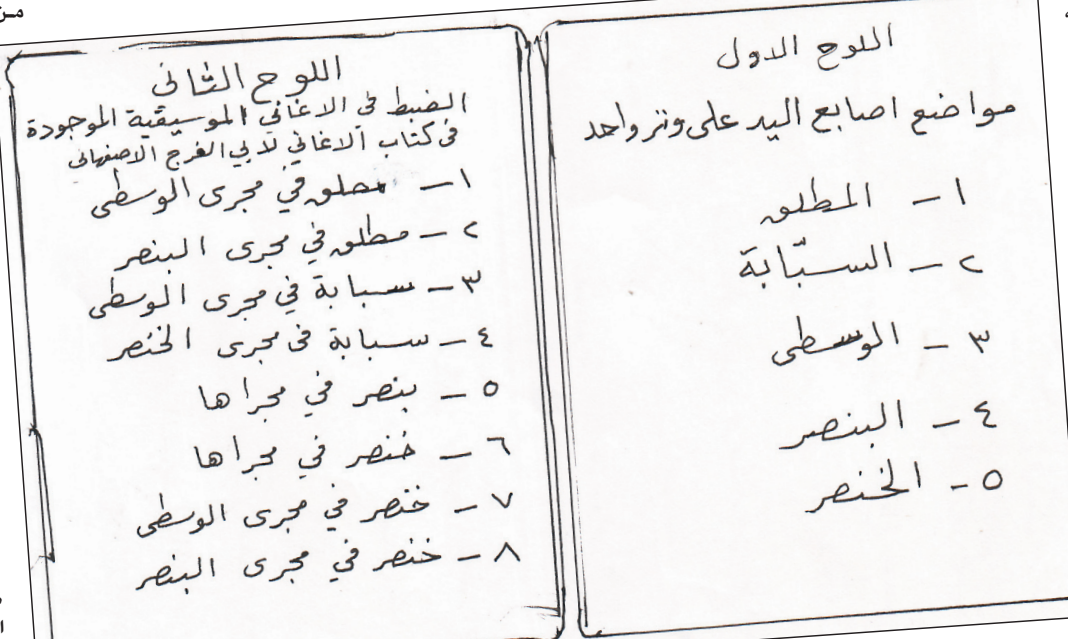 اللوح الاول
مواضع اصابع اليد على وتر واحد
١ - المطلق
٢ - السبّابة
٣ - الوسطى
٤ - البنصر
٥ - الخنصر
اللوح الثاني
الضبط في الاغاني الموسيقية الموجودة
في كتاب الاغاني لابي الفرج الاصفهاني
١ - مطلق في مجرى الوسطى
٢ - مطلق في مجرى البنصر
٣ - سبابة في مجرى الوسطى
٤ - سبابة في مجرى الخنصر
٥ - بنصر في مجراها
٦ - خنصر في مجراها
٧ - خنصر في مجرى الوسطى
٨ - خنصر في مجرى البنصر